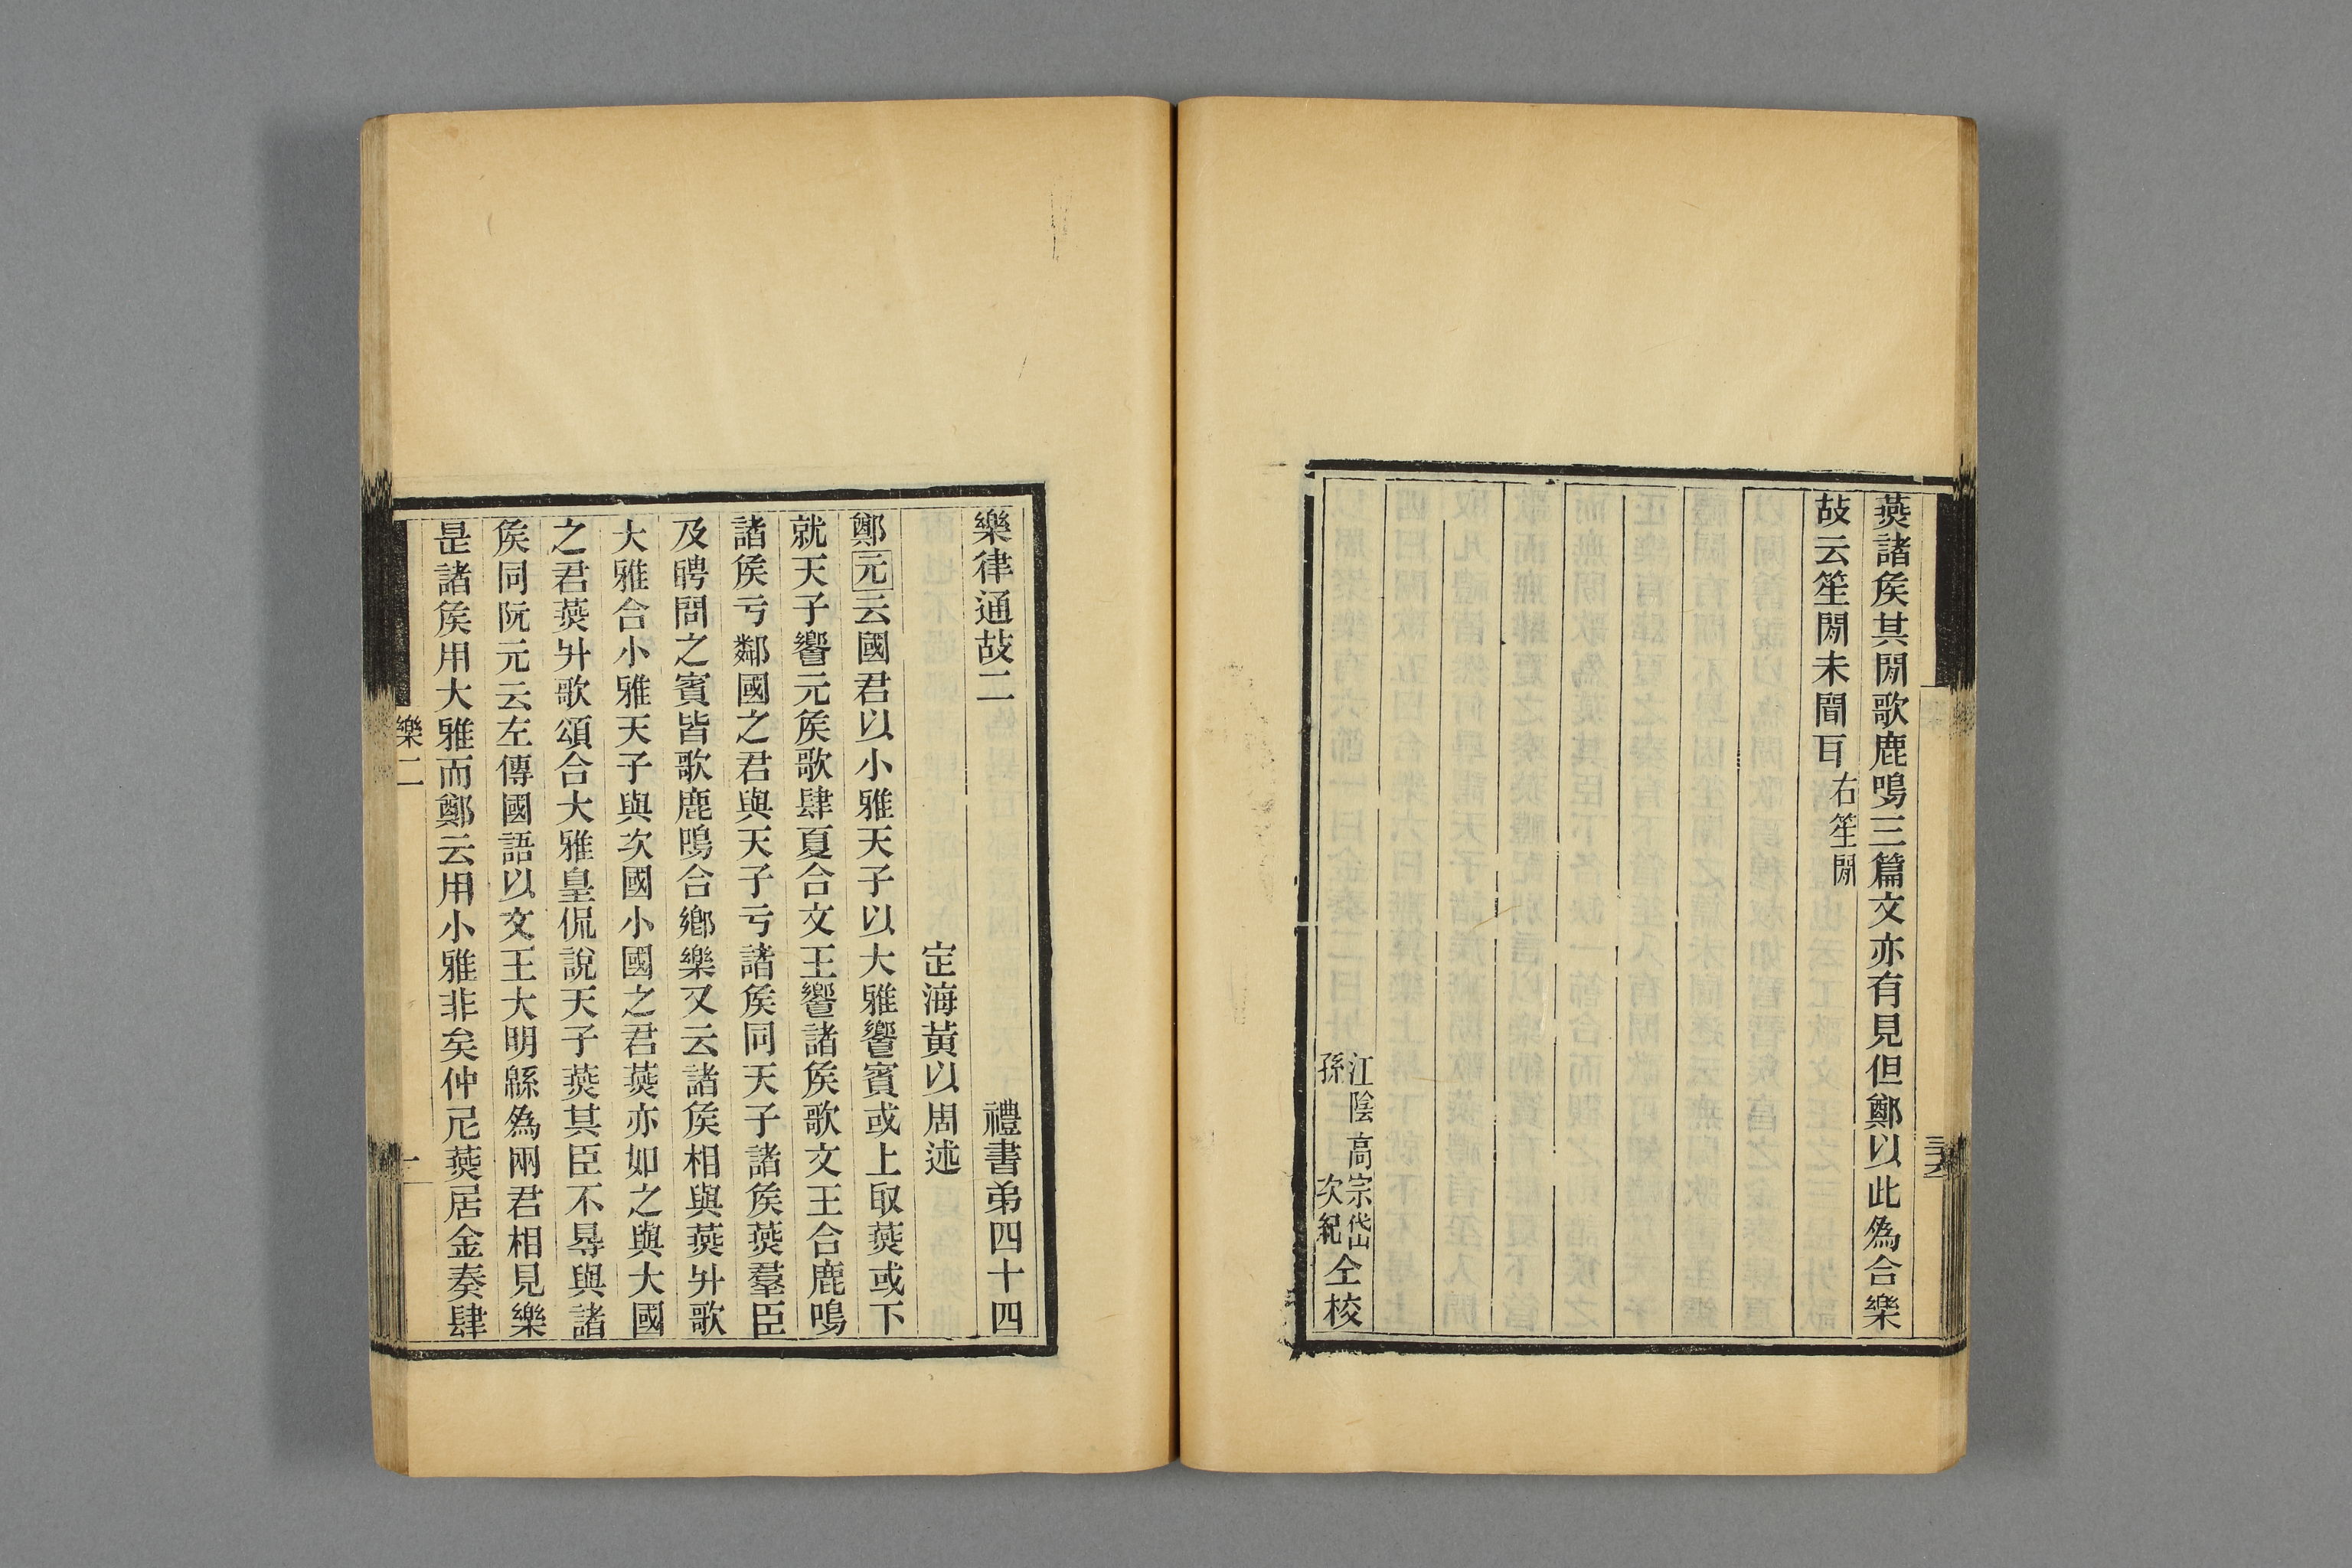 燕諸矦其閒歌鹿鳴三篇文亦有見但鄭以此爲合樂
故云笙閒未聞耳右笙閒
江陰高宗岱山
孫次紀
仝校
三十六
樂律通故二
禮書弟四十四
定海黃以周述
鄭元云國君以小雅天子以大雅饗賓或上取燕或下
就天子饗元矦歌肆夏合文王饗諸矦歌文王合鹿鳴
諸矦亏鄰國之君與天子亏諸矦同天子諸矦燕羣臣
及聘問之賓皆歌鹿鳴合鄉樂又云諸矦相與燕升歌
大雅合小雅天子與次國小國之君燕亦如之與大國
之君燕升歌頌合大雅皇侃說天子燕其臣不㝵與諸
矦同阮元云左傳國語以文王大明緜爲兩君相見樂
是諸矦用大雅而鄭云用小雅非矣仲尼燕居金奏肆
樂二
一